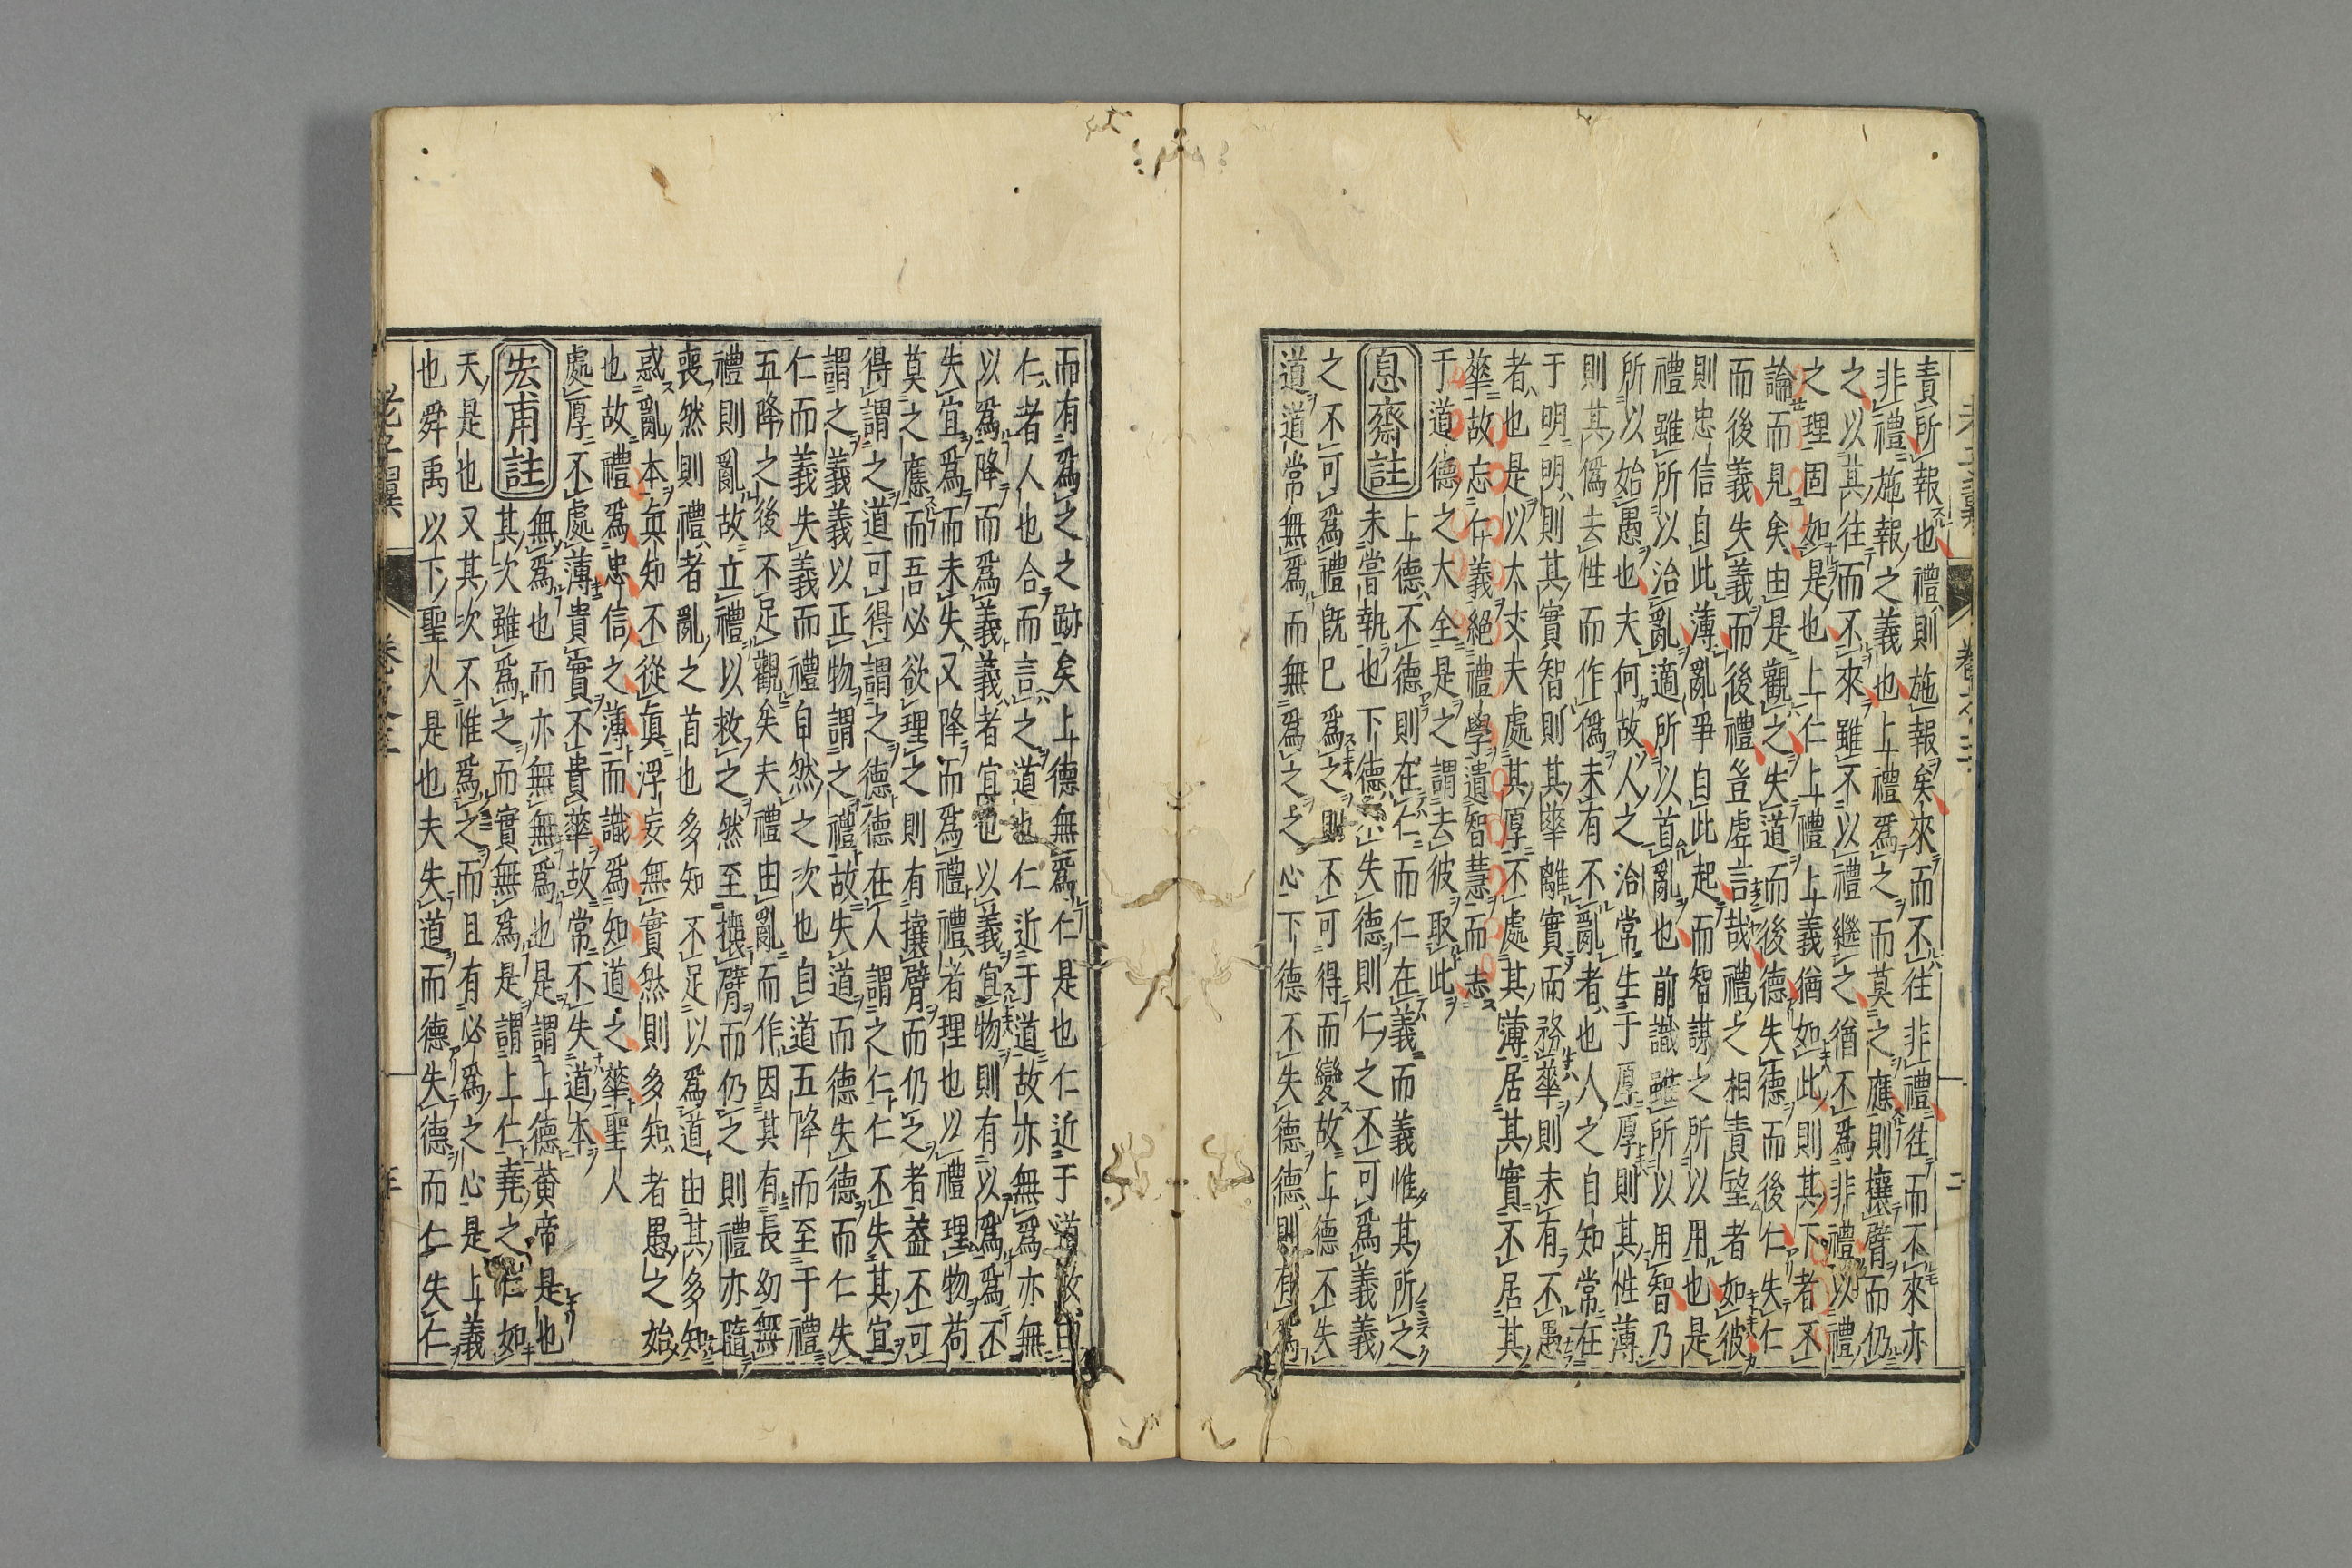 責所報也禮則施報矣來而不往非禮往而不來亦
非禮施報之義也上禮爲之而莫之應則攘臂而仍
之以其往而不來雖不以禮繼之猶不爲非禮以禮
之理固如是也上仁上禮上義猶如此則其下者不
論而見矣由是觀之失道而後德失德而後仁失仁
而後義失義而後禮豈虛言哉禮之相責望者如彼
則忠信自此薄亂爭自此起而智謀之所以用也是
禮雖所以治亂適所以首亂也前識雖所以用智乃
所以始愚也夫何故人之治常生于厚厚則其性薄
則其僞去性而作僞未有不亂者也人之自知常在
于明明則其實智則其華離實而務華則未有不愚
者也是以大丈夫處其厚不處其薄居其實不居其
華故忘仁義絕禮學遺智慧而志
于道德之大全是之謂去彼取此
息齋註
上德不德則在仁而仁在義而義惟其所之
未嘗執也下德不失德則仁之不可爲義義
之不可爲禮旣已爲之則不可得而變故上德不失
道道常無爲而無爲之之心下德不失德德則有爲
老子翼
卷之三
二
而有爲之之跡矣上德無爲仁是也仁近于道故曰
仁者人也合而言之道也仁近于道故亦無爲亦無
以爲降而爲義義者宜也以義宜物則有以爲爲不
失宜爲而未失又降而爲禮禮者理也以禮理物苟
莫之應而吾必欲理之則有攘臂而仍之者蓋不可
得謂之道可得謂之德德在人謂之仁仁不失其宜
謂之義義以正物謂之禮故失道而德失德而仁失
仁而義失義而禮自然之次也自道五降而至于禮
五降之後不足觀矣夫禮由亂而作因其有長幼無
禮則亂故立禮以救之然至攘臂而仍之則禮亦隨
喪然則禮者亂之首也多知不足以爲道由其多知
惑亂本眞知不從眞浮妄無實然則多知者愚之始
也故禮爲忠信之薄而識爲知道之華聖人
處厚不處薄貴實不貴華故常不失道本
宏甫註
無爲也而亦無無爲也是謂上德黃帝是也
其次雖爲之而實無爲是謂上仁堯之仁如
天是也又其次不惟爲之而且有必爲之心是上義
也舜禹以下聖人是也夫失道而德失德而仁失仁
老子翼